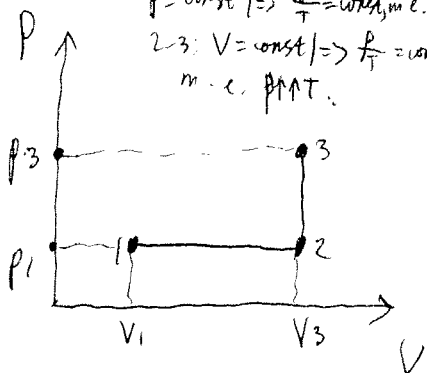 p = const | => V/T = const, т.е.
2-3: V = const | => p/T = con
т.е. p↑↑T.
P
p3
3
p1
1
2
V1
V3
V